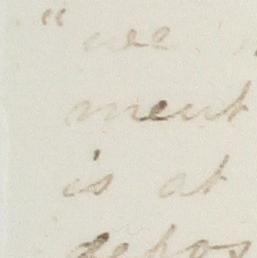 " we
ment
is at
depos